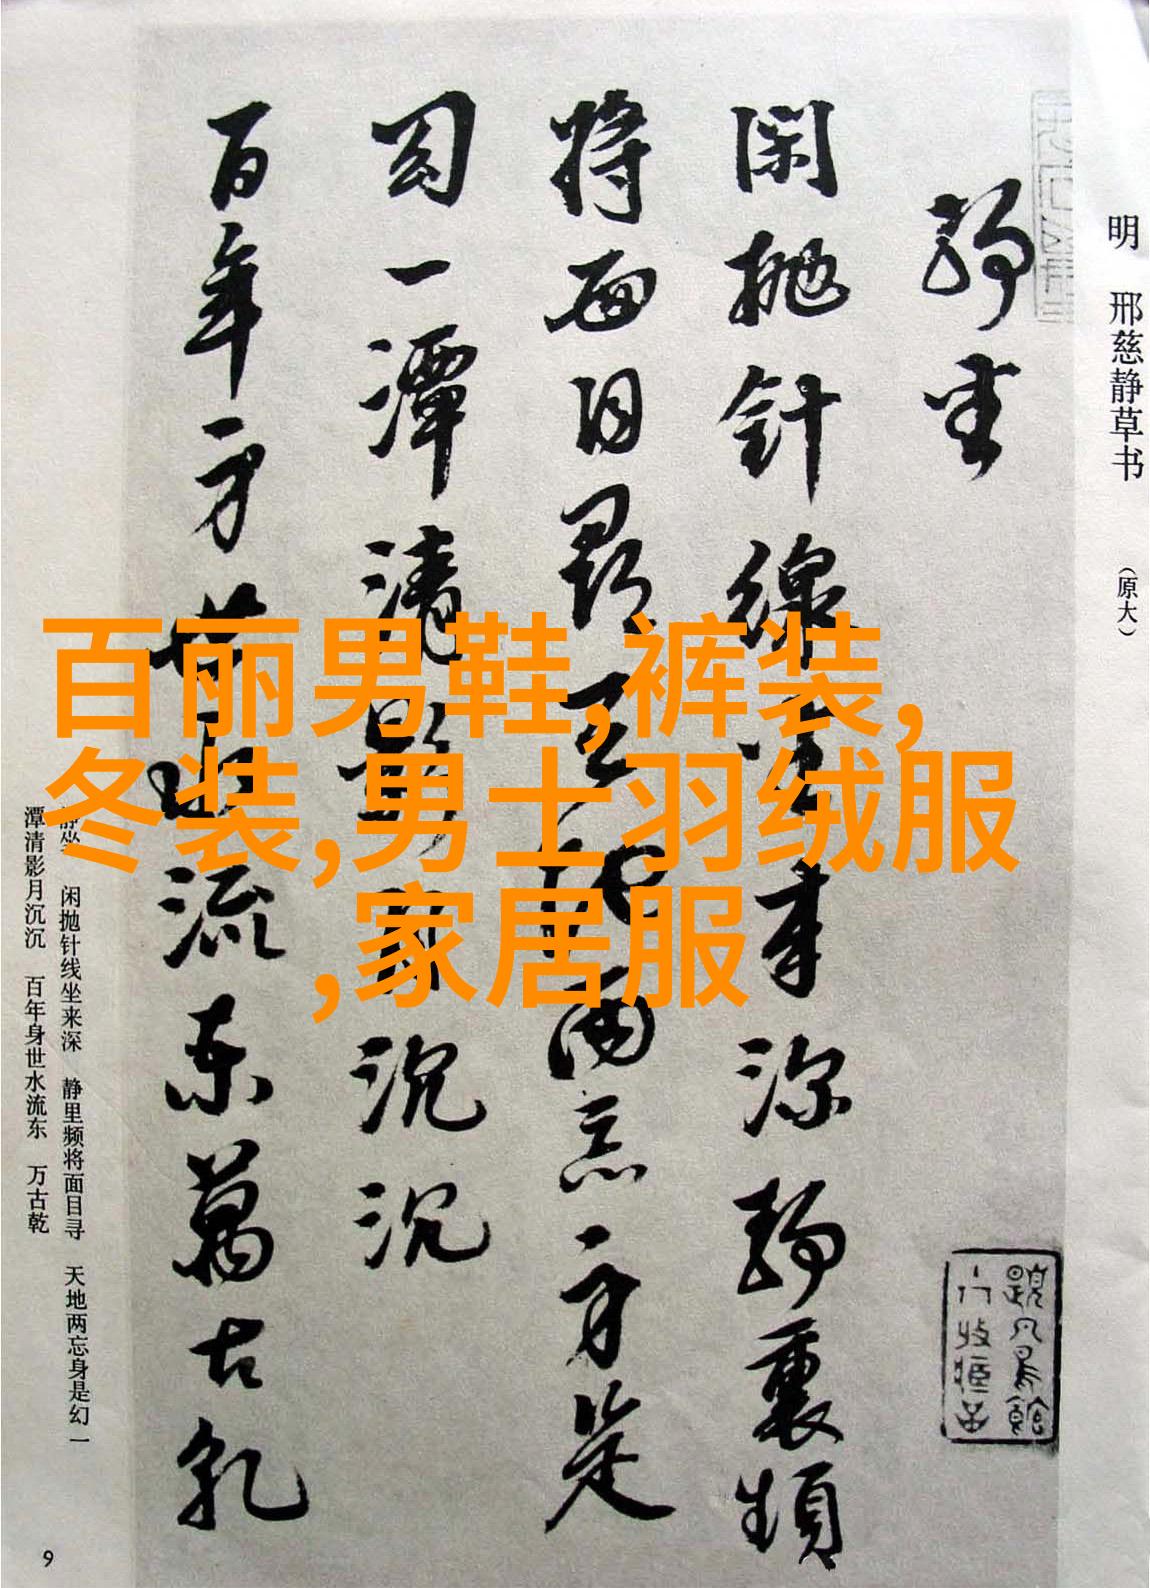 明 邢慈静草书 （原大）
静坐
闲抛针线坐来深静里频
将面目寻天地两忘身是
幻一潭清影月沉沉
百年身世水流东万古乾
静坐 闲抛针线坐来深 静里频将面目寻 天地两忘身是幻 一
潭清影月沉沉 百年身世水流东 万古乾
9
百丽男鞋,裤装,
冬装,男士羽绒服
,家居服